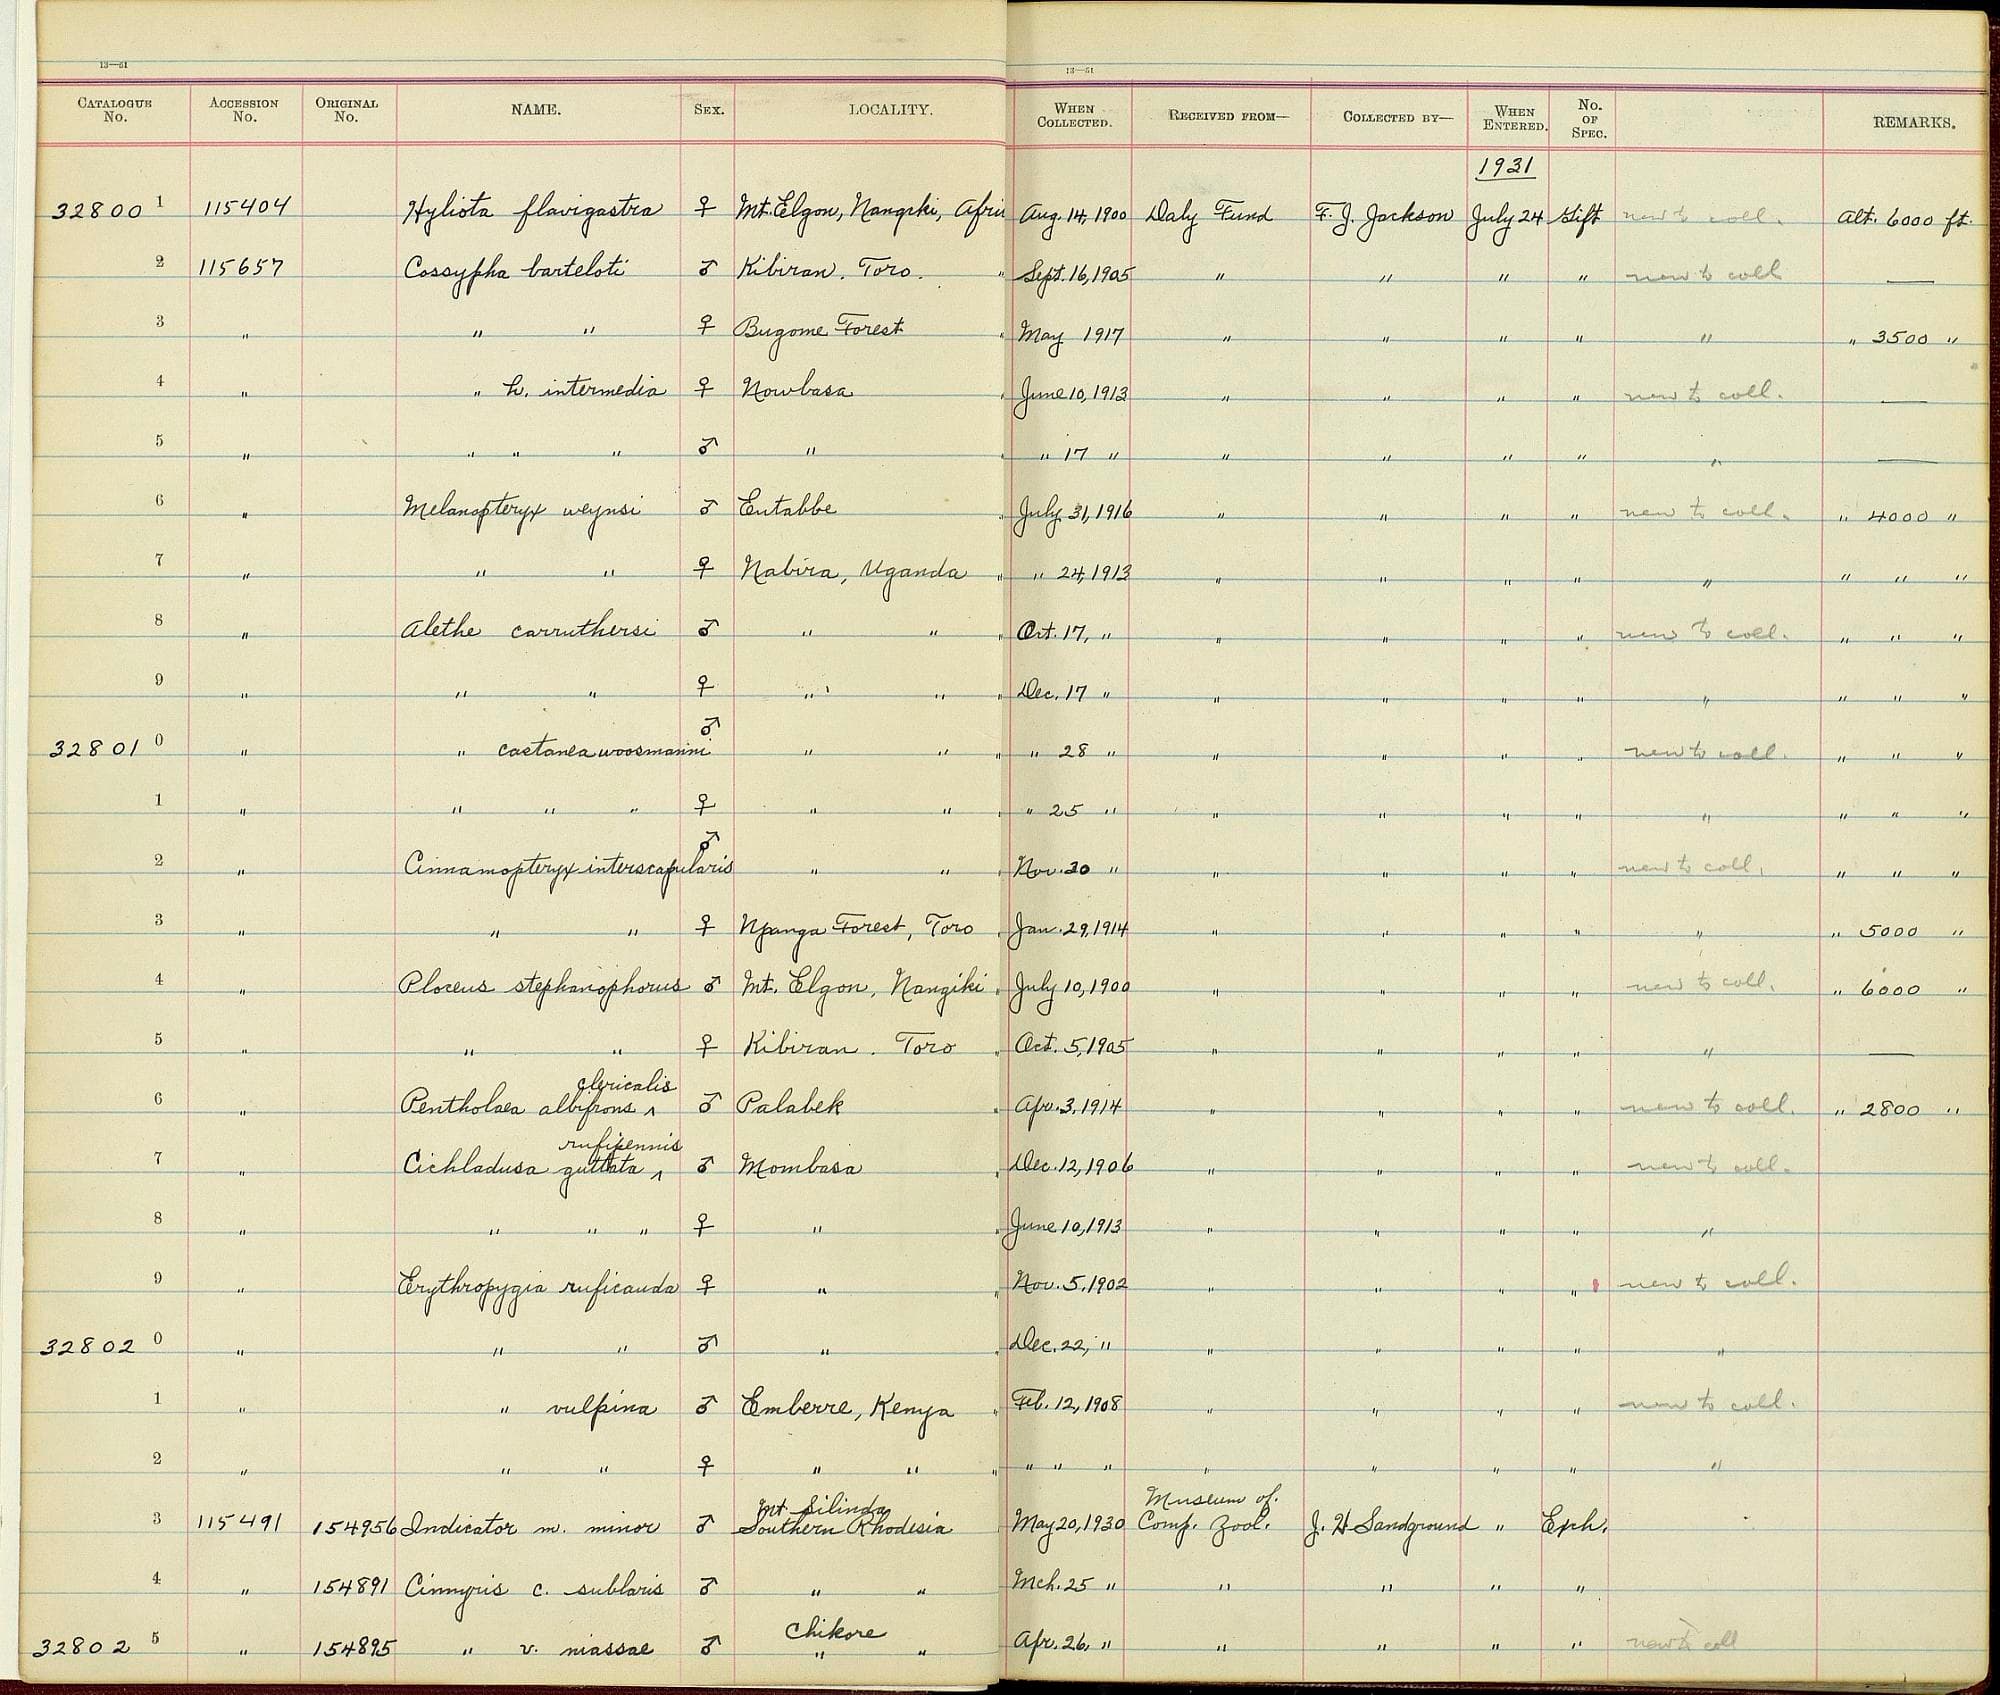 13—51
13—51
CATALOGUE No. ACCESSION No. ORIGINAL No. NAME. SEX. LOCALITY. WHEN COLLECTED. RECEIVED FROM— COLLECTED BY— WHEN ENTERED. No. OF SPEC. REMARKS.
1931
32800 1 115404 Hyliota flavigastra ♀ Mt. Elgon, Nangiki, Afri Aug. 14, 1900 Daly Fund F. J. Jackson July 24 Gift new to coll. Alt. 6000 ft.
2 115657 Cossypha barteloti ♂ Kibiran. Toro. " Sept. 16, 1905 " " " " new to coll —
3 " " " ♀ Bugome Forest " May 1917 " " " " " " 3500 "
4 " " h. intermedia ♀ Nowbasa " June 10, 1913 " " " " new to coll. —
5 " " " " ♂ " " " 17 " " " " " " —
6 " Melanopteryx weynsi ♂ Entabbe " July 31, 1916 " " " " new to coll. " 4000 "
7 " " " ♀ Nabira, Uganda " " 24, 1913 " " " " " " " "
8 " Alethe carruthersi ♂ " " " Oct. 17, " " " " " new to coll. " " "
9 " " " ♀ " " " Dec. 17 " " " " " " " " "
32801 0 " " castanea woosmanni ♂ " " " " 28 " " " " " new to coll. " " "
1 " " " " ♀ " " " " 25 " " " " " " " " "
2 " Cinnamopteryx interscapularis ♂ " " " Nov. 30 " " " " " new to coll. " " "
3 " " " ♀ Npanga Forest, Toro " Jan. 29, 1914 " " " " " " 5000 "
4 " Ploceus stephanophorus ♂ Mt. Elgon, Nangiki " July 10, 1900 " " " " new to coll. " 6000 "
5 " " " ♀ Kibiran. Toro " Oct. 5, 1905 " " " " " —
clericalis
6 " Pentholaea albifrons ^ ♂ Palabek " Apr. 3, 1914 " " " " new to coll. " 2800 "
rufipennis
7 " Cichladusa guttata ^ ♂ Mombasa " Dec. 12, 1906 " " " " new to coll.
8 " " " " ♀ " " June 10, 1913 " " " " "
9 " Erythropygia ruficauda ♀ " " Nov. 5, 1902 " " " " new to coll.
32802 0 " " " ♂ " " Dec. 22, " " " " " "
1 " " vulpina ♂ Emberre, Kenya " Feb. 12, 1908 " " " " new to coll.
2 " " " ♀ " " " " " " " " " " "
Mt. Silinda Museum of
3 115491 154956 Indicator m. minor ♂ Southern Rhodesia May 20, 1930 Comp. Zool. J. H Sandground " Exch.
4 " 154891 Cinnyris c. sublaris ♂ " " Mch. 25 " " " " "
Chikore
32802 5 " 154895 " v. niassae ♂ " " Apr. 26, " " " " " new to coll